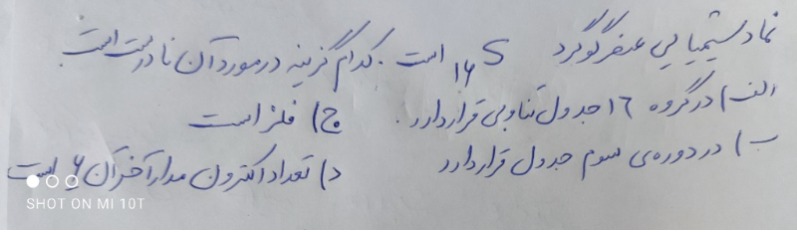 نماد شیمیایی عنصر گوگرد ₁₆S است. کدام گزینه در مورد آن نادرست است.
الف) در گروه ۱۶ جدول تناوبی قرار دارد. ج) فلز است
ب) در دوره‌ی سوم جدول قرار دارد د) تعداد الکترون مدار آخر آن ۶ است
SHOT ON MI 10T